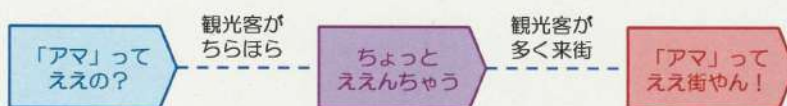 「アマ」って
ええの？
観光客が
ちらほら
ちょっと
ええんちゃう
観光客が
多く来街
「アマ」って
ええ街やん！